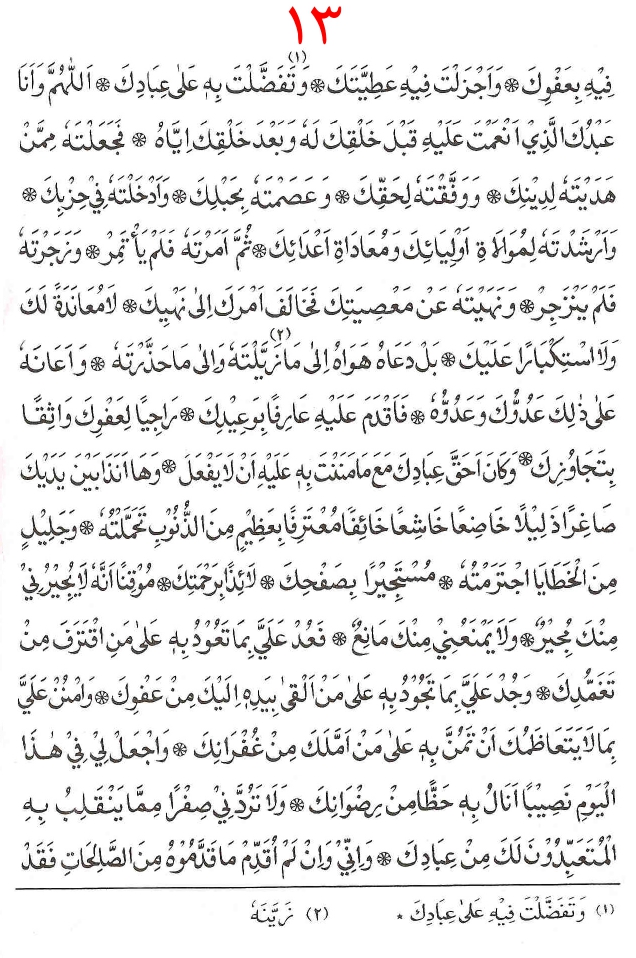 ١٣
فِيْهِ بِعَفْوِكَ ❋ وَاَجْزَلْتَ فِيْهِ عَطِيَّتَكَ ❋ وَتَفَضَّلْتَ (١) بِهٖ عَلٰى عِبَادِكَ ❋ اَللّٰهُمَّ وَاَنَا
عَبْدُكَ الَّذِيْ اَنْعَمْتَ عَلَيْهِ قَبْلَ خَلْقِكَ لَهٗ وَبَعْدَ خَلْقِكَ اِيَّاهُ ❋ فَجَعَلْتَهٗ مِمَّنْ
هَدَيْتَهٗ لِدِيْنِكَ ❋ وَوَفَّقْتَهٗ لِحَقِّكَ ❋ وَعَصَمْتَهٗ بِحَبْلِكَ ❋ وَاَدْخَلْتَهٗ فِيْ حِزْبِكَ ❋
وَاَرْشَدْتَهٗ لِمُوَالَاةِ اَوْلِيَائِكَ وَمُعَادَاةِ اَعْدَائِكَ ❋ ثُمَّ اَمَرْتَهٗ فَلَمْ يَأْتَمِرْ ❋ وَزَجَرْتَهٗ
فَلَمْ يَنْزَجِرْ ❋ وَنَهَيْتَهٗ عَنْ مَعْصِيَتِكَ فَخَالَفَ اَمْرَكَ اِلٰى نَهْيِكَ ❋ لَا مُعَانَدَةً لَكَ
وَلَا اسْتِكْبَارًا عَلَيْكَ ❋ بَلْ دَعَاهُ هَوَاهُ اِلٰى مَا زَيَّلْتَهٗ (٢) وَاِلٰى مَا حَذَّرْتَهٗ ❋ وَاَعَانَهٗ
عَلٰى ذٰلِكَ عَدُوُّكَ وَعَدُوُّهٗ ❋ فَاَقْدَمَ عَلَيْهِ عَارِفًا بِوَعِيْدِكَ ❋ رَاجِيًا لِعَفْوِكَ وَاثِقًا
بِتَجَاوُزِكَ ❋ وَكَانَ اَحَقَّ عِبَادِكَ مَعَ مَا مَنَنْتَ بِهٖ عَلَيْهِ اَنْ لَا يَفْعَلَ ❋ وَهَا اَنَذَا بَيْنَ يَدَيْكَ
صَاغِرًا ذَلِيْلًا خَاضِعًا خَاشِعًا خَائِفًا مُعْتَرِفًا بِعَظِيْمٍ مِنَ الذُّنُوْبِ تَحَمَّلْتُهٗ ❋ وَجَلِيْلٍ
مِنَ الْخَطَايَا اجْتَرَمْتُهٗ ❋ مُسْتَجِيْرًا بِصَفْحِكَ ❋ لَائِذًا بِرَحْمَتِكَ ❋ مُوْقِنًا اَنَّهٗ لَا يُجِيْرُنِيْ
مِنْكَ مُجِيْرٌ ❋ وَلَا يَمْنَعُنِيْ مِنْكَ مَانِعٌ ❋ فَعُدْ عَلَيَّ بِمَا تَعُوْدُ بِهٖ عَلٰى مَنِ اقْتَرَفَ مِنْ
تَغَمُّدِكَ ❋ وَجُدْ عَلَيَّ بِمَا تَجُوْدُ بِهٖ عَلٰى مَنْ اَلْقٰى بِيَدِهٖ اِلَيْكَ مِنْ عَفْوِكَ ❋ وَامْنُنْ عَلَيَّ
بِمَا لَا يَتَعَاظَمُكَ اَنْ تَمُنَّ بِهٖ عَلٰى مَنْ اَمَّلَكَ مِنْ غُفْرَانِكَ ❋ وَاجْعَلْ لِيْ فِيْ هٰذَا
الْيَوْمِ نَصِيْبًا اَنَالُ بِهٖ حَظًّا مِنْ رِضْوَانِكَ ❋ وَلَا تَرُدَّنِيْ صِفْرًا مِمَّا يَنْقَلِبُ بِهِ
الْمُتَعَبِّدُوْنَ لَكَ مِنْ عِبَادِكَ ❋ وَاِنِّيْ وَاِنْ لَمْ اُقَدِّمْ مَا قَدَّمُوْهُ مِنَ الصَّالِحَاتِ فَقَدْ
(١) وَتَفَضَّلْتَ فِيْهِ عَلٰى عِبَادِكَ * (٢) زَيَّنَهٗ